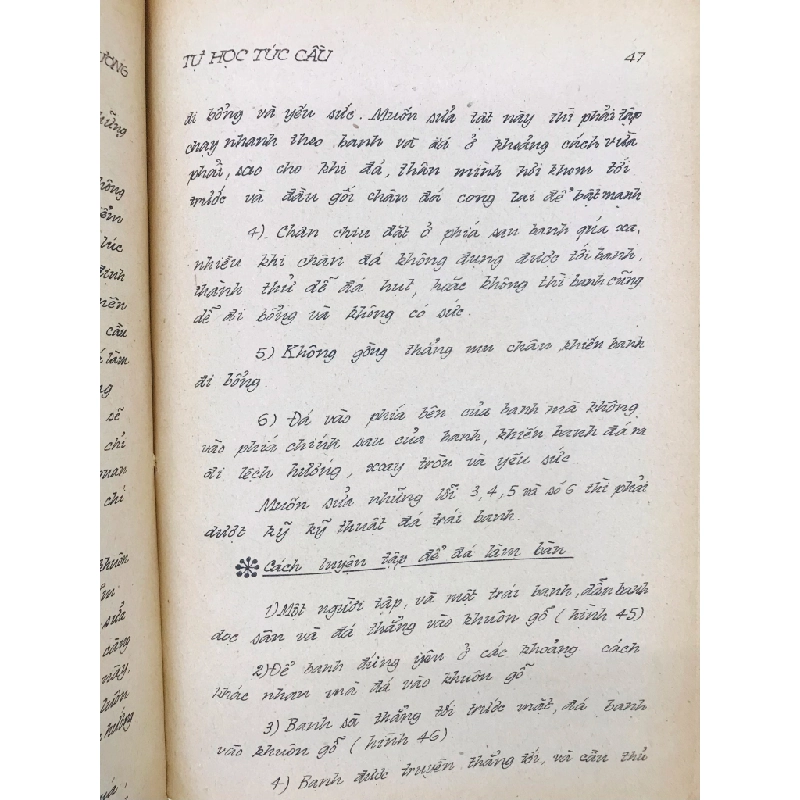 TỰ HỌC TÚC CẦU 47
ƯƠNG
đi bổng và yếu sức. Muốn sửa tật này thì phải tập
chạy nhanh theo banh và đá ở khoảng cách vừa
phải, sao cho khi đá, thân mình hơi khom tới
trước và đầu gối chân đá cong lại để bật mạnh
4). Chân chịu đặt ở phía sau banh quá xa,
nhiều khi chân đá không đụng được tới banh,
thành thử dễ đá hụt, hoặc không thì banh cũng
dễ đi bổng và không có sức.
5) Không gồng thẳng mu chân, khiến banh
đi bổng
6) Đá vào phía bên của banh mà không
vào phía chính sau của banh, khiến banh đá ra
đi lệch hướng, xoay tròn và yếu sức
Muốn sửa những lỗi 3,4,5 và số 6 thì phải
dượt kỹ kỹ thuật đá trái banh.
Cách luyện tập để đá làm bàn
1) Một người tập, và một trái banh, dẫn banh
dọc sân và đá thẳng vào khuôn gỗ (hình 45)
2) Để banh đứng yên ở các khoảng cách
khác nhau mà đá vào khuôn gỗ
3) Banh sà thẳng tới trước mặt, đá banh
vào khuôn gỗ (hình 46)
4) Banh được truyền thẳng tới, và cầu thủ